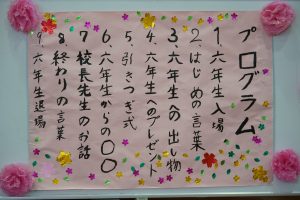 プログラム
1、六年生入場
2、はじめの言葉
3、六年生への出し物
4、六年生へのプレゼント
5、引きつぎ式
6、六年生からの〇〇
7 校長先生のお話
8 終わりの言葉
9、六年生退場